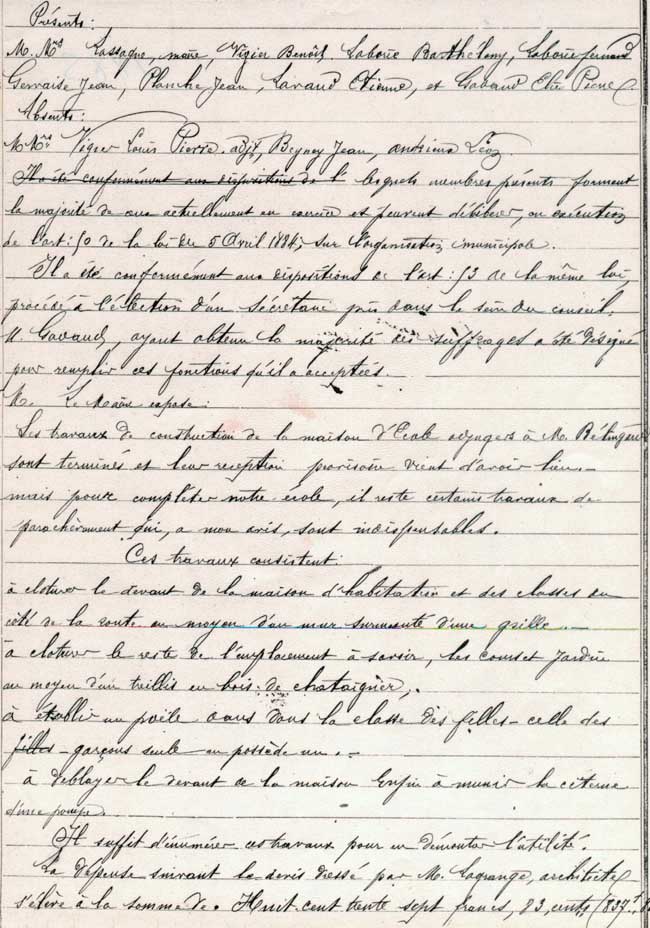 Présents:
M. Mrs Lassagne, maire, Vigier Benoît. Laborie Barthelemy, Laborie fernand
Gervaise Jean, Planche Jean, Lavaud Etienne, et Gavaud Elie Pierre
Absents:
M Mrs Vigier Louis Pierre adjt, Beyney Jean, andrieux Léon.
Il a été conformément aux dispositions de l' lesquels membres présents forment
la majorité de ceux actuellement en exercice et peuvent délibérer, en exécution
de l'art: 50 de la loi du 5 Avril 1884, sur l'organisation municipale.
Il a été conformément aux dispositions de l'art: 53 de la même loi,
procédé à l'élection d'un sécrétaire pris dans le sein du conseil.
M. Gavaud, ayant obtenu la majorité des suffrages a été désigné
pour remplir ces fonctions qu'il a acceptées.
M. Le Maire expose:
Les travaux de construction de la maison d'Ecole adjugers à M.
sont terminés et leur reception provisoire vient d'avoir lieu -
mais pour compléter notre école, il reste certains travaux de
parachèvement qui, a mon avis, sont indispensables.
Ces travaux consistent:
à cloturer le devant de la maison d'habitation et des classes du
côté de la route au moyen d'un mur surmonté d'une grille. -
à cloturer le reste de l'emplacement à savoir, les cours et Jardin
au moyen d'un treillis en bois de chataignier,.
à établir un poële dans la classe des filles - celle des
filles - garçons seule en possède un. -
à déblayer le devant de la maison Enfin à munir la citerne
d'une pompe.
Il suffit d'énumérer ces travaux pour en démontrer l'utilité.
La dépense suivant le devis dressé par M. Lagrange, architecte
s'élève à la somme de. Huit-cent trente sept francs, 83, cents, (837f,